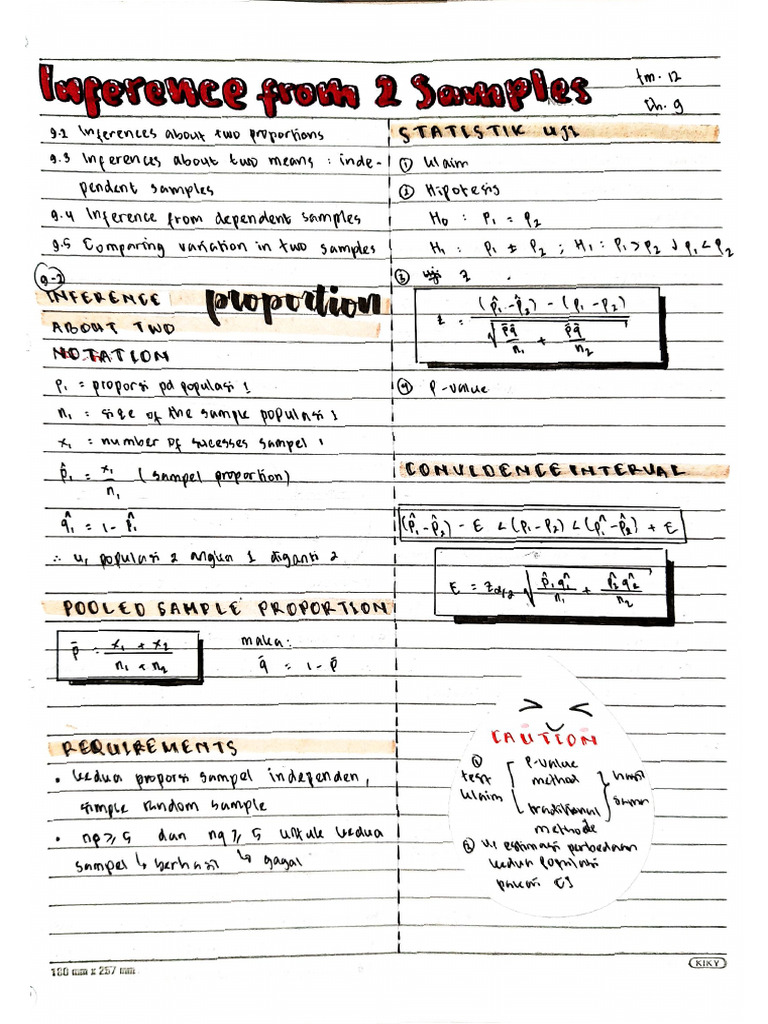 Inference from 2 Samples
tm. 12
Ch. 9
9.2 Inferences about two proportions
9.3 Inferences about two means : inde-
pendent samples
9.4 Inference from dependent samples
9.5 Comparing variation in two samples
9-2
INFERENCE proportion
ABOUT TWO
NOTATION
p₁ = proporsi pd populasi 1
n₁ = size of the sample populasi 1
x₁ = number of sucesses sampel 1
p̂₁ = x₁/n₁ (sampel proportion)
q̂₁ = 1 - p̂₁
∴ u, populasi 2 angka 1 diganti 2
POOLED SAMPLE PROPORTION
p̄ = (x₁ + x₂)/(n₁ + n₂)
maka:
q̄ = 1 - p̄
REQUIREMENTS
• kedua proporsi sampel independen,
simple random sample
• np ≥ 5 dan nq ≥ 5 untuk kedua
sampel ↳ berhasil ↳ gagal
STATISTIK UJI
① Klaim
② Hipotesis
H₀ : p₁ = p₂
H₁ : p₁ ± p₂ ; H₁ : p₁ > p₂ ; p₁ < p₂
③ uji z
z = ((p̂₁ - p̂₂) - (p₁ - p₂)) / √(p̄q̄/n₁ + p̄q̄/n₂)
④ P-value
CONVIDENCE INTERVAL
(p̂₁ - p̂₂) - E < (p₁ - p₂) < (p̂₁ - p̂₂) + E
E = z α/2 √(p̂₁q̂₁/n₁ + p̂₂q̂₂/n₂)
> <
CAUTION
① test klaim
P-value method
traditional methode
hasil sama
② u, estimasi perbedaan
kedua populasi
pakai CI
180 mm x 257 mm
KIKY